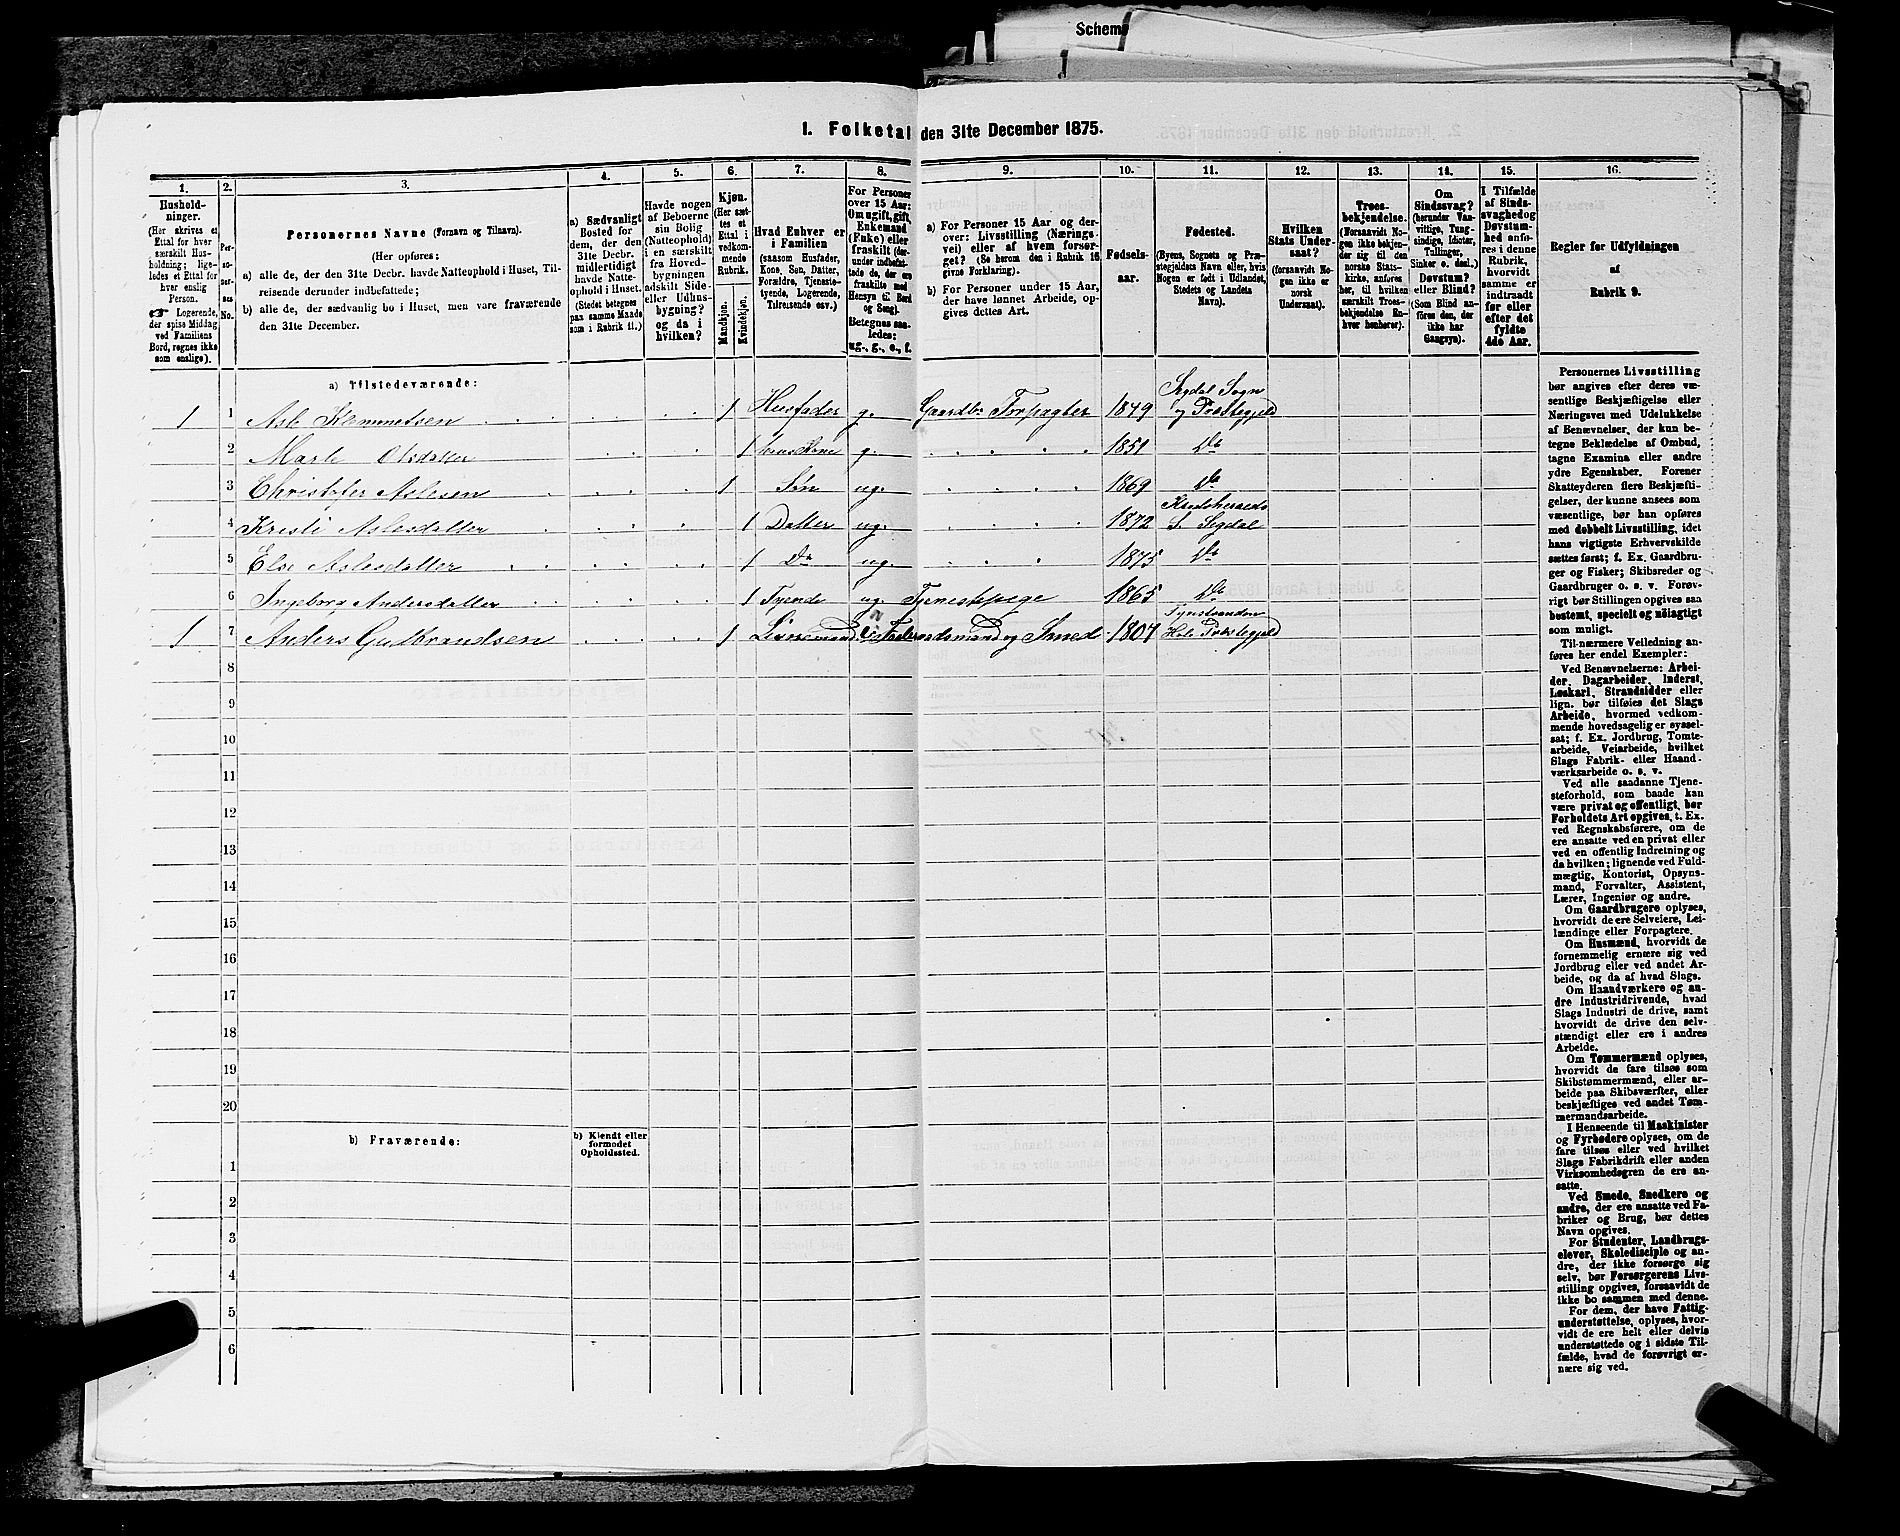 Schem
I. Folketal den 31te December 1875.
1. 2. 3. 4. 5. 6. 7. 8. 9. 10. 11. 12. 13. 14. 15. 16.
Hushold-
ninger.
(Her skrives et
Ettal for hver
særskilt Hus-
holdning; lige-
ledes et Ettal for
hver enslig
Person.
☞ Logerende,
der spise Middag
ved Familiens
Bord, regnes ikke
som enslige).
Per-
so-
ner-
nes
No.
Personernes Navne (Fornavn og Tilnavn).
(Her opføres:
a) alle de, der den 31te Decbr. havde Natteophold i Huset, Til-
reisende derunder indbefattede;
b) alle de, der sædvanlig bo i Huset, men vare fraværende
den 31te December.
a) Sædvanligt
Bosted for
dem, der den
31te Decbr.
midlertidigt
havde Natte-
ophold i Huset.
(Stedet betegnes
paa samme Maade
som i Rubrik 11.)
Havde nogen
af Beboerne
sin Bolig
(Natteophold)
i en særskilt
fra Hoved-
bygningen
adskilt Side-
eller Udhus-
bygning?
og da i
hvilken?
Kjøn.
(Her sæt-
tes et
Ettal i
vedkom-
mende
Rubrik.
Mandkjøn.
Kvindekjøn.
Hvad Enhver er
i Familien
(saasom Husfader,
Kone, Søn, Datter,
Forældre, Tjeneste-
tyende, Logerende,
Tilreisende osv.)
For Personer
over 15 Aar:
Om ugift, gift,
Enkemand
(Enke) eller
fraskilt (der-
under indbefat-
tede de, der ere
fraskilte med
Hensyn til Bord
og Seng).
Betegnes saa-
ledes:
ug., g., e., f.
a) For Personer 15 Aar og der-
over: Livsstilling (Nærings-
vei) eller af hvem forsør-
get? (Se herom den i Rubrik 16
givne Forklaring).
b) For Personer under 15 Aar,
der have lønnet Arbeide, op-
gives dettes Art.
Fødsels-
aar.
Fødested.
(Byens, Sognets og Præ-
stegjeldets Navn eller, hvis
Nogen er født i Udlandet,
Stedets og Landets
Navn).
Hvilken
Stats Under-
saat?
(forsaavidt No-
gen ikke er
norsk
Undersaat).
Troes-
bekjendelse.
(Forsaavidt No-
gen ikke bekjen-
der sig til den
norske Stats-
kirke, anføres
her, til hvilken
særskilt Troes-
bekjendelse En-
hver henhører).
Om
Sindssvag?
(herunder Van-
vittige, Tung-
sindige, Idioter,
Tullinger,
Sinker o. desl.)
Døvstum?
eller Blind?
(Som Blind an-
føres den, der
ikke har
Gangsyn).
I Tilfælde
af Sinds-
svaghed og
Døvstum-
hed anfø-
res i denne
Rubrik,
hvorvidt
samme er
indtraadt
før eller
efter det
fyldte
4de Aar.
Regler for Udfyldningen
af
Rubrik 9.
a) Tilstedeværende:
1 1 Asle Klemmetsen 1 Husfader g. Gaardbr. Forpagter 1849 Segdal Sogn
og Præstegjeld
2 Marte Olsdatter 1 Hans Kone g. 1851 Do
3 Christofer Aslesen 1 Søn ug. 1869 Do
4 Kristi Aslesdatter 1 Datter ug. 1872 Krødsherreds
S. Segdal
5 Else Aslesdatter 1 Do ug. 1875 Do
6 Ingeborg Andersdatter 1 Tyende ug. Tjenestepige 1865 Do
1 7 Anders Gulbrandsen 1 Smed 1807 Hole Præstegjeld
8
9
10
11
12
13
14
15
16
17
18
19
20
b) Fraværende:
b) Kjendt eller
formodet
Opholdssted.
1
2
3
4
5
6
Personernes Livsstilling
bør angives efter deres væ-
sentlige Beskjæftigelse eller
Næringsvei med Udelukkelse
af Benævnelser, der kun be-
tegne Beklædelse af Ombud,
tagne Examina eller andre
ydre Egenskaber. Forener
Skatteyderen flere Beskjæfti-
gelser, der kunne ansees som
væsentlige, bør han opføres
med dobbelt Livsstilling, idet
hans vigtigste Erhvervskilde
sættes først; f. Ex. Gaardbru-
ger og Fisker; Skibsreder og
Gaardbruger o. s. v. Forøv-
rigt bør Stillingen opgives saa
bestemt, specielt og nøiagtigt
som muligt.
Til nærmere Veiledning an-
føres her endel Exempler:
Ved Benævnelserne: Arbei-
der, Dagarbeider, Inderst,
Løskarl, Strandsidder eller
lign. bør tilføies det Slags
Arbeide, hvormed vedkom-
mende hovedsagelig er syssel-
sat; f. Ex. Jordbrug, Tomte-
arbeide, Veiarbeide, hvilket
Slags Fabrik- eller Haand-
værksarbeide o. s. v.
Ved alle saadanne Tjene-
steforhold, som baade kan
være privat og offentligt, bør
Forholdets Art opgives, t. Ex.
ved Regnskabsførere, om de
ere ansatte ved en privat eller
ved en offentlig Indretning og
da hvilken; lignende ved Fuld-
mægtig, Kontorist, Opsyns-
mand, Forvalter, Assistent,
Lærer, Ingeniør og andre.
Om Gaardbrugere oplyses,
hvorvidt de ere Selveiere, Lei-
lændinge eller Forpagtere.
Om Husmænd, hvorvidt de
fornemmelig ernære sig ved
Jordbrug eller ved andet Ar-
beide, og da af hvad Slags.
Om Haandværkere og an-
dre Industridrivende, hvad
Slags Industri de drive, samt
hvorvidt de drive den selv-
stændigt eller ere i andres
Arbeide.
Om Tømmermænd oplyses,
hvorvidt de fare tilsøs som
Skibstømmermænd, eller ar-
beide paa Skibsværfter, eller
beskjæftiges ved andet Tøm-
mermandsarbeide.
I Henseende til Maskinister
og Fyrbødere oplyses, om de
fare tilsøs eller ved hvilket
Slags Fabrikdrift eller anden
Virksomhedsgren de ere an-
satte.
Ved Smede, Snedkere og
andre, der ere ansatte ved Fa-
briker og Brug, bør dettes
Navn opgives.
For Studenter, Landbrugs-
elever, Skoledisciple og an-
dre, der ikke forsørge sig
selv, bør Forsørgerens Livs-
stilling opgives, forsaavidt de
ikke bo sammen med denne.
For dem, der have Fattig-
understøttelse, oplyses, hvor-
vidt de ere helt eller delvis
understøttede og i sidste Til-
fælde, hvad de forøvrigt er-
nære sig ved.